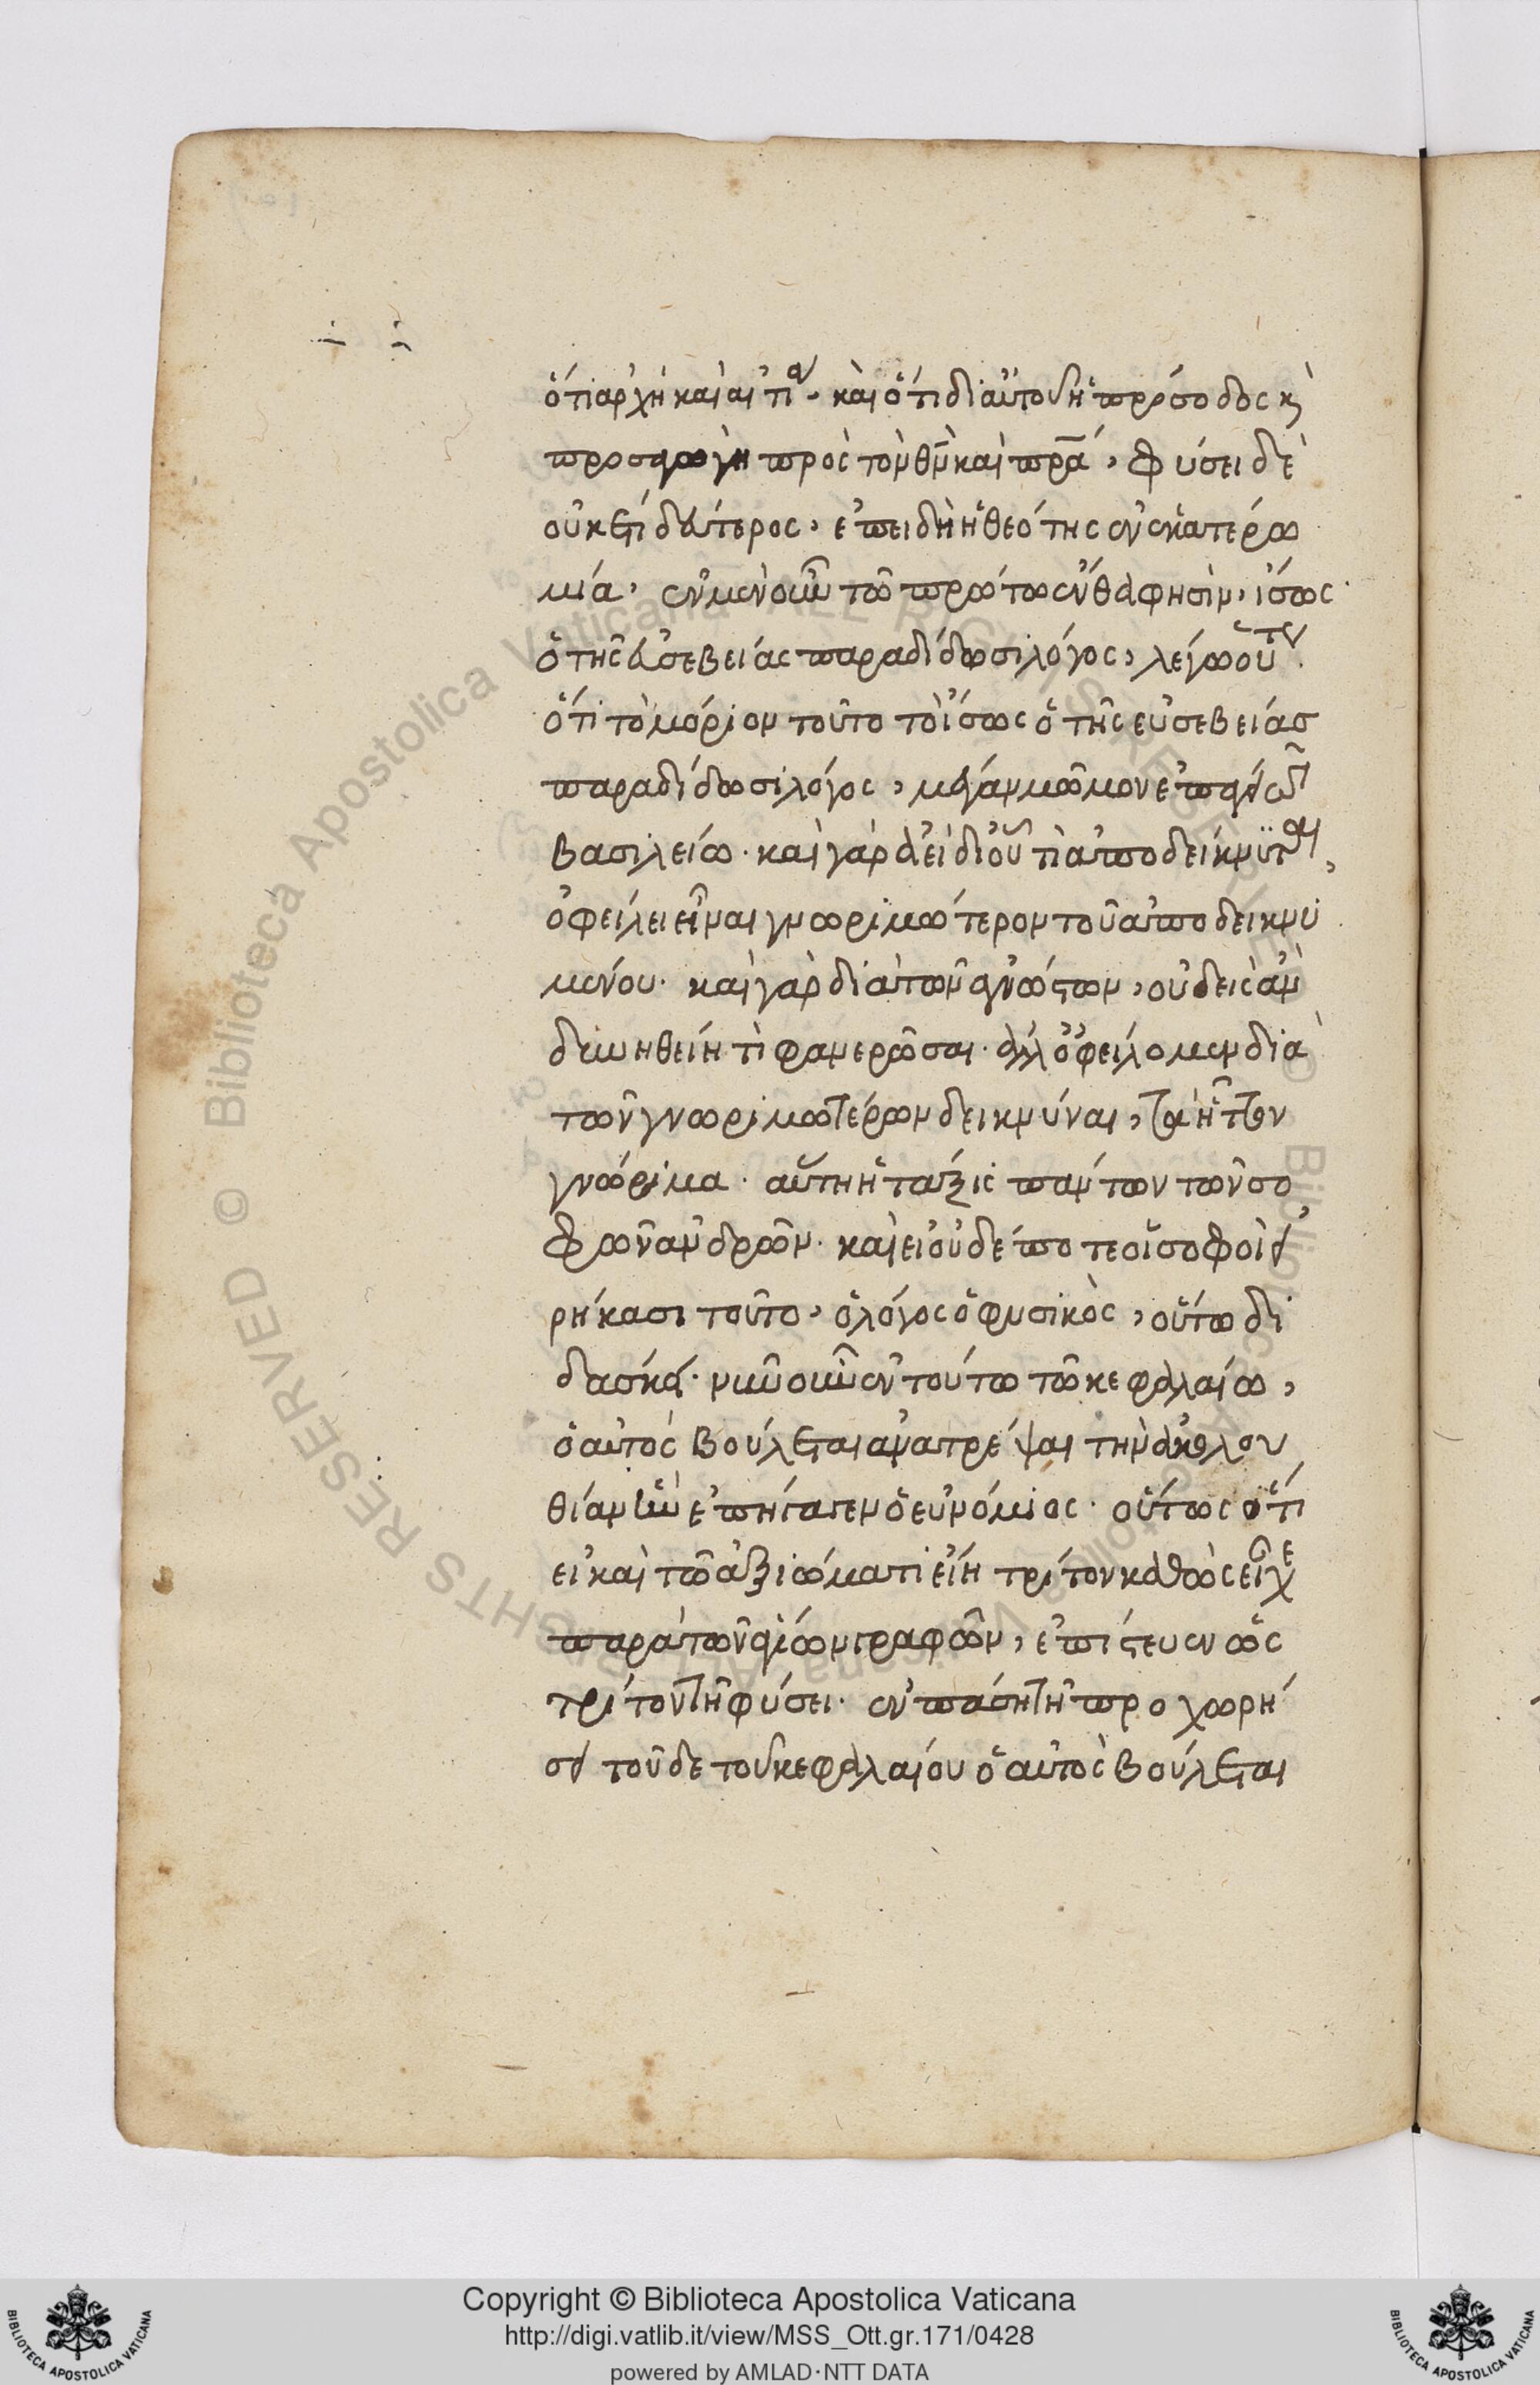 ὅτι ἀρχὴ καὶ αἰτία· καὶ ὅτι δι αὐτοῦ ἡ πρόσοδος κ
προσαγωγὴ πρὸς τὸν θν καὶ πρα, φύσει δὲ
οὐκέτι δεύτερος, ἐπειδὴ ἡ θεότης ἐν ἑκατέρω
μία, ἐν μὲν οὖν τῶ πρώτω ἔνθα φησὶν, ἴσως
ὁ τῆς εὐσεβείας παραδίδωσι λόγος, λέγω οὖν
ὅτι τὸ μόριον τοῦτο τὸ ἴσως ὁ τῆς εὐσεβείας
παραδίδωσι λόγος, μέγαν μῶμον ἐπάγει τῶ
βασιλείω· καὶ γὰρ ἀεὶ δι οὗ τὶ ἀποδείκνυται,
ὀφείλει εἶναι γνωριμώτερον τοῦ ἀποδεικνυ
μένου· καὶ γὰρ διὰ τῶν ἀγνώστων, οὐδεὶς ἂν
δυνηθείη τὶ φανερῶσαι· ἀλλ ὀφείλομεν διὰ
τῶν γνωριμωτέρων δεικνύναι, τὰ ἧττον
γνώριμα· αὕτη ἡ τάξις πάντων τῶν σο
φῶν ἀνδρῶν· καὶ εἰ οὐδέποτε οἱ σοφοὶ εἰ
ρήκασι τοῦτο, ὁ λόγος ὁ φυσικὸς, οὕτω δι
δάσκει· νῦν οὖν ἐν τούτω τῶ κεφαλαίω,
ὁ αὐτὸς βούλεται ἀνατρέψαι τὴν ἀκολου
θίαν ἣν ἐπήγαγεν ὁ εὐνόμιος· οὕτως ὅτι
εἰ καὶ τῶ ἀξιώματι εἴη τρίτον καθὼς εἶχε
παρὰ τῶν ἁγίων γραφῶν, ἐπίστευεν ὡς
τρίτον τῆ φύσει· ἐν πάση τῆ προχωρή
σει τοῦδε τοῦ κεφαλαίου ὁ αὐτὸς βούλεται
Copyright © Biblioteca Apostolica Vaticana
http://digi.vatlib.it/view/MSS_Ott.gr.171/0428
powered by AMLAD·NTT DATA